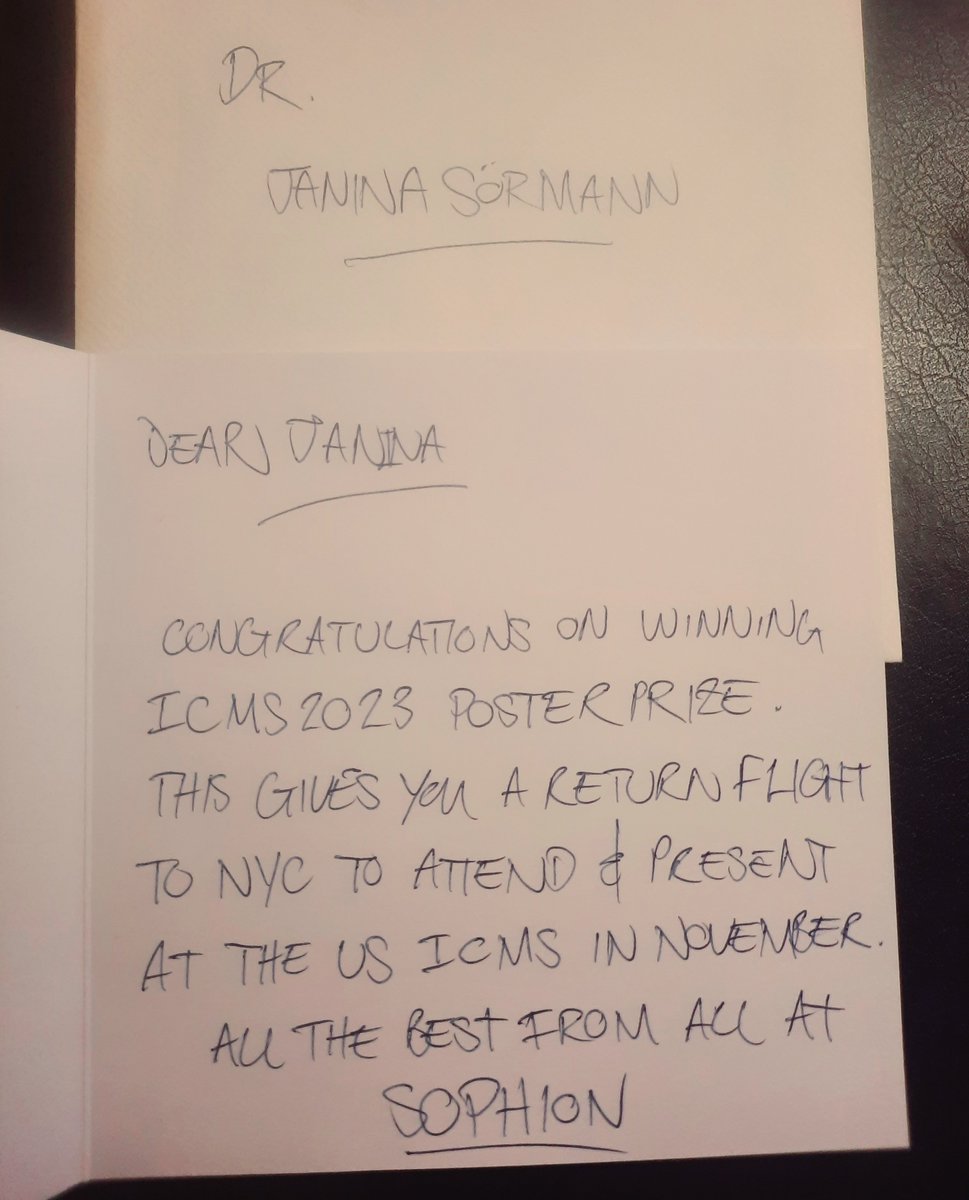 DR.
JANINA SÖRMANN
DEAR JANINA
CONGRATULATIONS ON WINNING
ICMS2023 POSTER PRIZE.
THIS GIVES YOU A RETURN FLIGHT
TO NYC TO ATTEND & PRESENT
AT THE US ICMS IN NOVEMBER.
ALL THE BEST FROM ALL AT
SOPHION